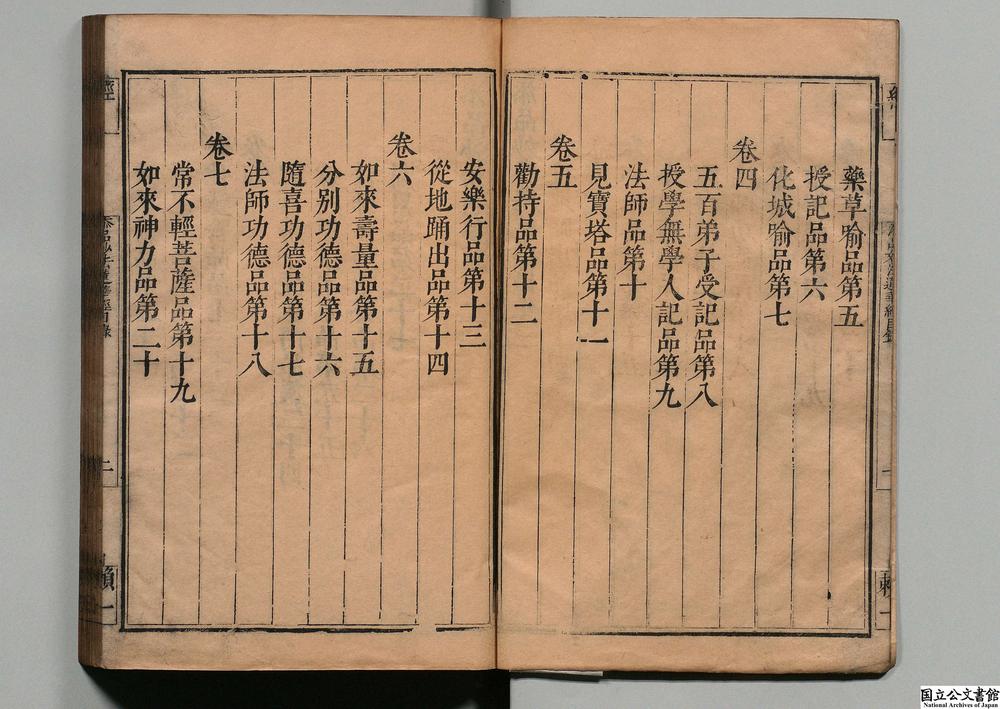 藥草喻品第五
授記品第六
化城喻品第七
卷四
五百弟子受記品第八
授學無學人記品第九
法師品第十
見寶塔品第十一
卷五
勸持品第十二
安樂行品第十三
從地踊出品第十四
卷六
如來壽量品第十五
分別功德品第十六
隨喜功德品第十七
法師功德品第十八
卷七
常不輕菩薩品第十九
如來神力品第二十
經
二
賴一
国立公文書館
National Archives of Japan